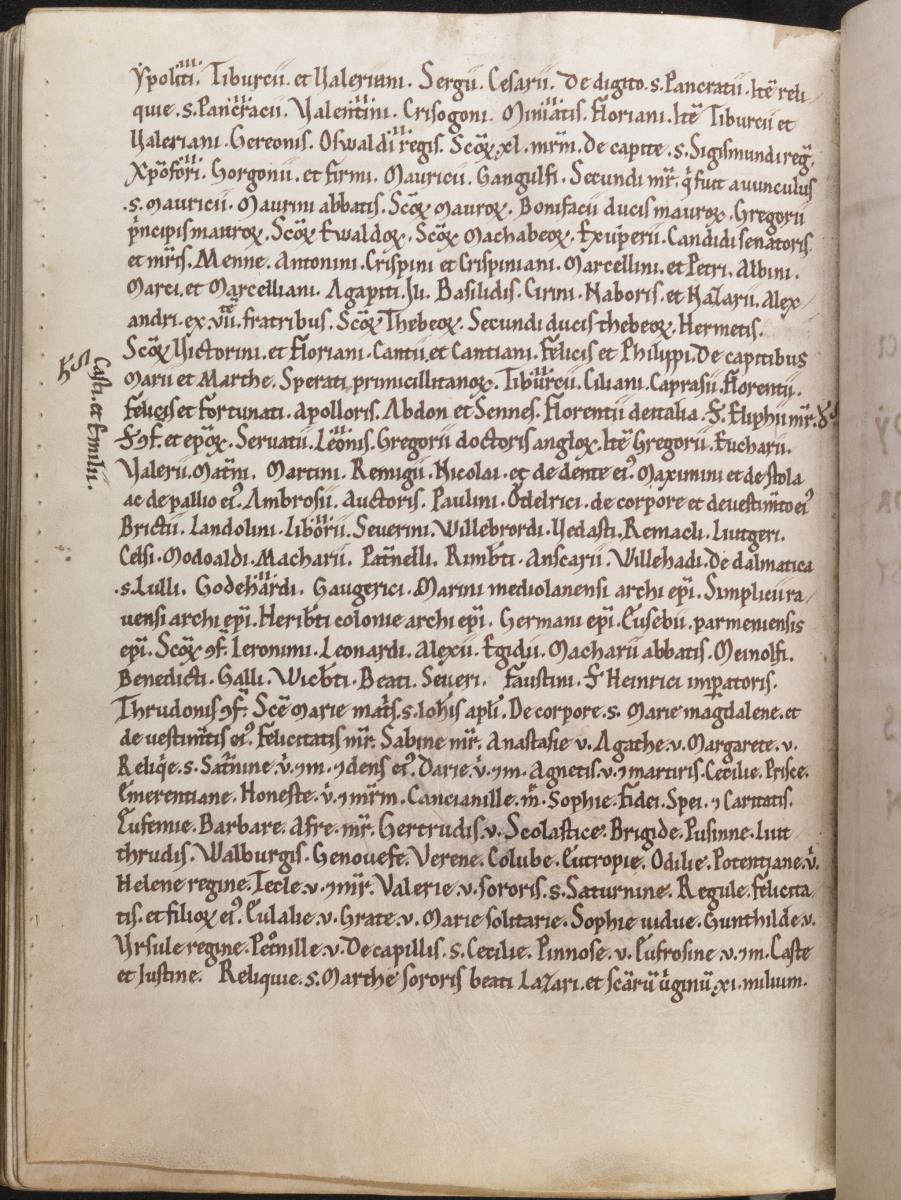 Ypoliti. Tiburcii. et Valeriani. Sergii. Cesarii. De digito .s. Pancratii. Itē reli
quie .s. Pancracii. Valentini. Crisogoni. Miniatis. Floriani. Itē Tiburcii et
Valeriani. Gereonis. Oswaldi regis. Scoꝝ .xl. mr̄m. De capite .s. Sigismundi reg̃.
Xp̄ofori. Gorgonii. et firmi. Mauricii. Gangulfi. Secundi mr̄. q̇ fuit auunculus
.s. Mauricii. Maurini abbatis. Scōꝝ Mauroꝝ. Bonifacii ducis mauroꝝ. Gregorii
ṗncipis mauroꝝ. Scōꝝ Ewaldoꝝ. Scōꝝ Machabeoꝝ. Exup̄erii. Candidi senatoris
et mr̄is. Menne. Antonini. Crispini et Crispiniani. Marcellini. et Petri. Albini.
Marci. et Marcelliani. Agapiti. Iu. Basilidis. Cirini. Naboris. et Nazarii. Alex
andri. ex .vii. fratribus. Scōꝝ Thebeoꝝ. Secundi ducis thebeoꝝ. Hermetis.
Scōꝝ Victorini. et Floriani. Cantii. et Cantiani. Felicis et Philippi. De capitibus
Marii et Marthe. Sperati primicillitanoꝝ. Tiburcii. Ciliani. Caprasii. Florentii.
Felicis et Fortunati. Apolloris. Abdon et Sennes. Florentii dentalia. Eliphii mr̄.
Casti. et Emilii.
ꝯf. et ep̄oꝝ. Seruatii. Leonis. Gregorii doctoris angloꝝ. Itē Gregorii. Eucharii.
Valerii. Mat̄ni. Martini. Remigii. Nicolai. et de dente eiꝰ. Maximini et de stola
ac de pallio eiꝰ. Ambrosii. Auctoris. Paulini. Odelrici. de corpore et de uestim̄to eiꝰ
Brictii. Landolini. Liborii. Seuerini. Willebrordi. Vedasti. Remacli. Liutgeri.
Celsi. Modoaldi. Macharii. Pat̄nelli. Rimb̄ti. Anscarii. Willehadi. De dalmatica
.s. Lulli. Godehardi. Gaugerici. Marini mediolanensi archi ep̄i. Simplicii ra
uensi archi ep̄i. Herib̄ti colonie archi ep̄i. Germani ep̄i. Eusebii. parmeniensis
ep̄i. Scōꝝ ꝯf. Ieronimi. Leonardi. Alexii. Egidii. Macharii abbatis. Meinolfi.
Benedicti. Galli. Wicb̄ti. Beati. Seueri. Faustini. Heinrici imp̄atoris.
Thrudonis ꝯf. Scē Marie mat̄s. s. Ioh̄is apl̄i. De corpore .s. Marie magdalene. et
de uestim̄tis eiꝰ. Felicitatis mr̄. Sabine mr̄. Anastasie v. Agathe. v. Margarete. v.
Reliq̄e .s. Sat̄nine. v̇. ⁊ m. ⁊ dens eiꝰ. Darie. v̇. ⁊ m. Agnetis. v. ⁊ martiris. Cecilie. Prisce.
Emerentiane. Honeste. v̇. ⁊ mr̄m. Cancianille. m̄. Sophie. Fidei. Spei. ⁊ Caritatis.
Eufemie. Barbare. Afre. mr̄. Gertrudis. v. Scolastice. Brigide. Pusinne. Liut
thrudis. Walburgis. Genouefe. Verene. Colube. Eutropie. Odilie. Potentiane. v̇.
Helene regine. Tecle. v. ⁊ mr̄. Valerie. v. sororis .s. Saturnine. Regule. Felicita
tis. et filioꝝ eiꝰ. Eulalie. v. Grate. v. Marie solitarie. Sophie uidue. Gunthilde. v.
Vrsule regine. Pet̄nille. v. De capillis .s. Cecilie. Pinnose. v. Eufrosine. v. ⁊ m. Caste
et Iustine. Reliquie .s. Marthe sororis beati Lazari. et scārū u̇ginū .xi. milium.